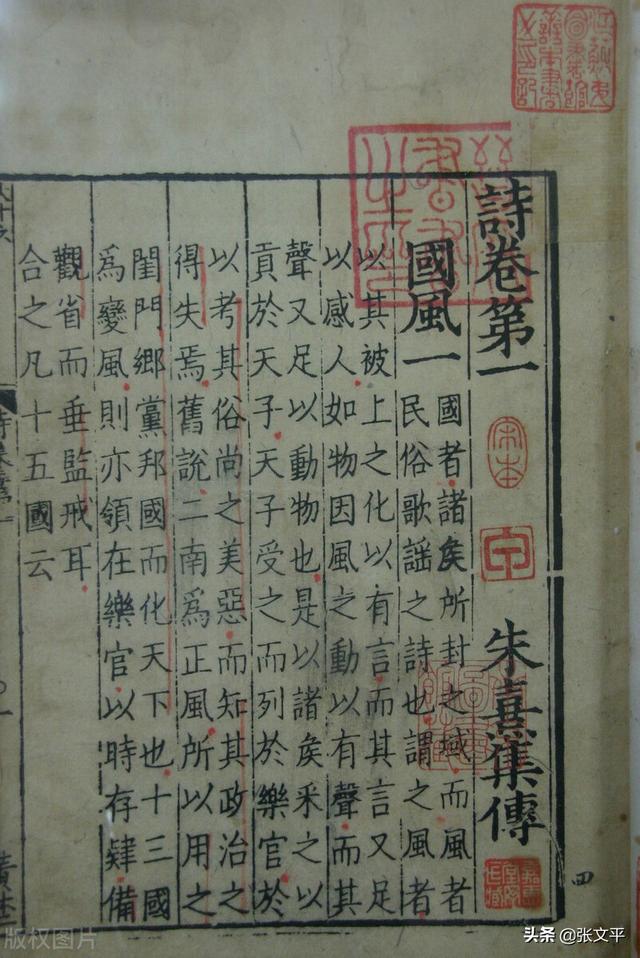 詩卷第一 朱熹集傳
國風一
國者諸矦所封之域而風者
民俗歌謠之詩也謂之風者
以其被上之化以有言而其言又足
以感人如物因風之動以有聲而其
聲又足以動物也是以諸矦采之以
貢於天子天子受之而列於樂官於
以考其俗尚之美惡而知其政治之
得失焉舊說二南爲正風所以用之
閨門鄉黨邦國而化天下也十三國
爲變風則亦領在樂官以時存肄備
觀省而垂監戒耳
合之凡十五國云
宋本
四
版权图片
头条 @张文平